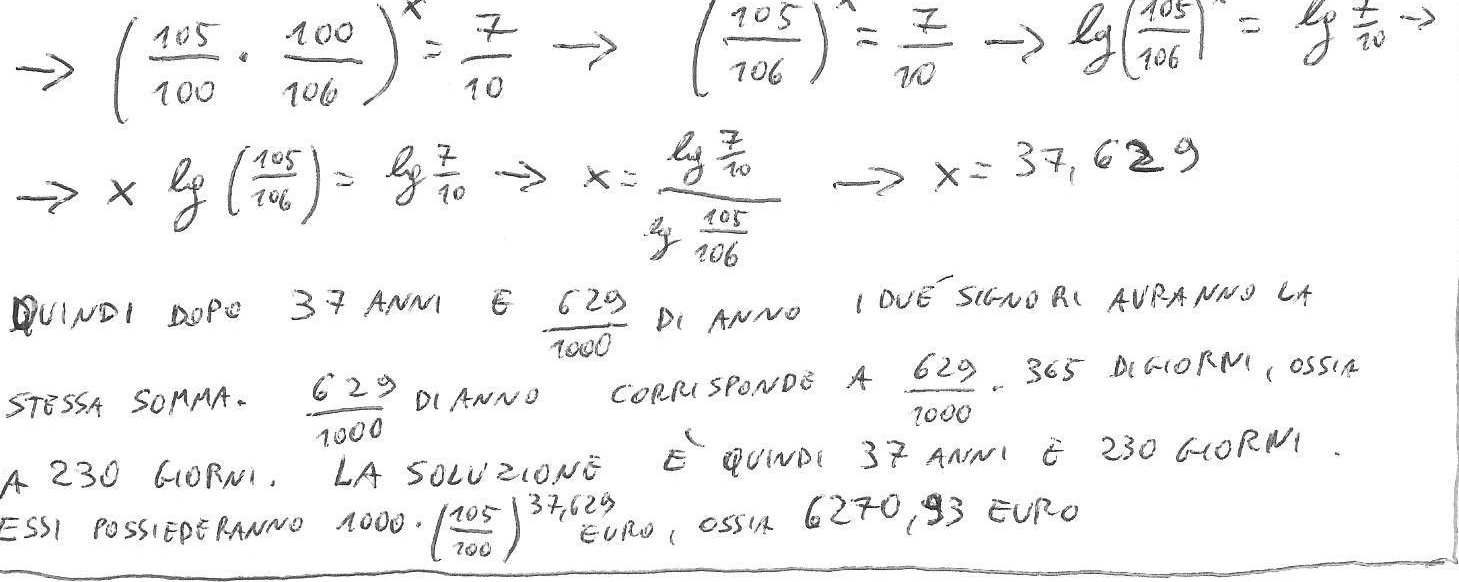 → (105/100 · 100/106)^x = 7/10 → (105/106)^x = 7/10 → lg(105/106)^x = lg 7/10 →
→ x lg (105/106) = lg 7/10 → x = lg 7/10 / lg 105/106 → x = 37,629
QUINDI DOPO 37 ANNI E 629/1000 DI ANNO I DUE SIGNORI AVRANNO LA
STESSA SOMMA. 629/1000 DI ANNO CORRISPONDE A 629/1000 · 365 DI GIORNI, OSSIA
A 230 GIORNI. LA SOLUZIONE È QUINDI 37 ANNI E 230 GIORNI.
ESSI POSSIEDERANNO 1000 · (105/100)^37,629 EURO, OSSIA 6270,93 EURO